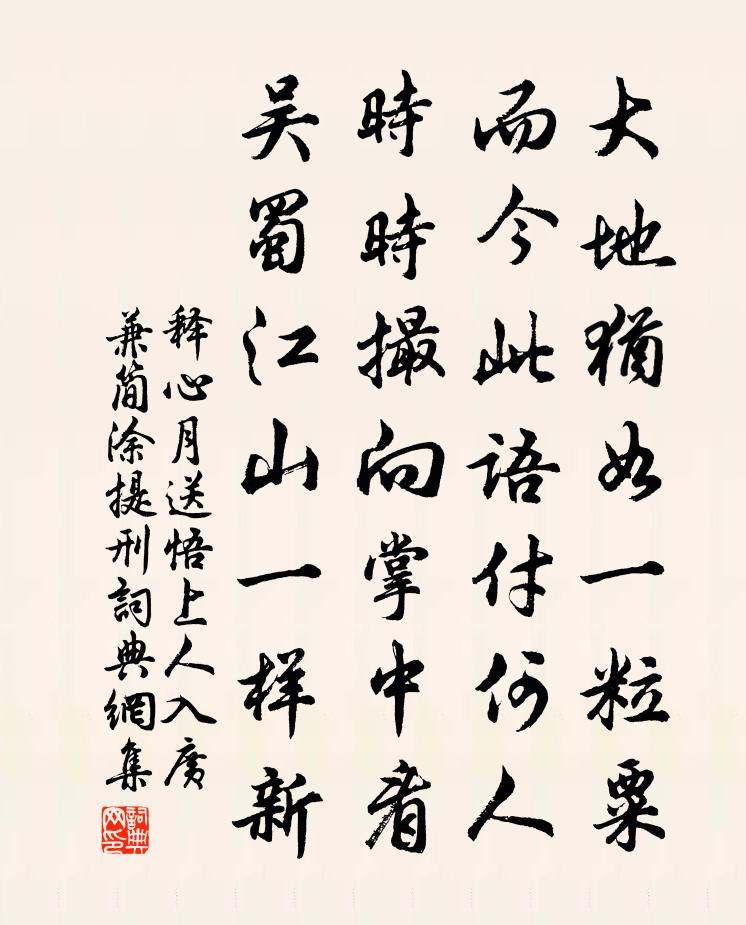 大地犹如一粒粟
而今此語付何人
時時撮向掌中看
吴蜀江山一样新
释心月送悟上人入廣
兼简涂提刑詞典網集
詞典
网印